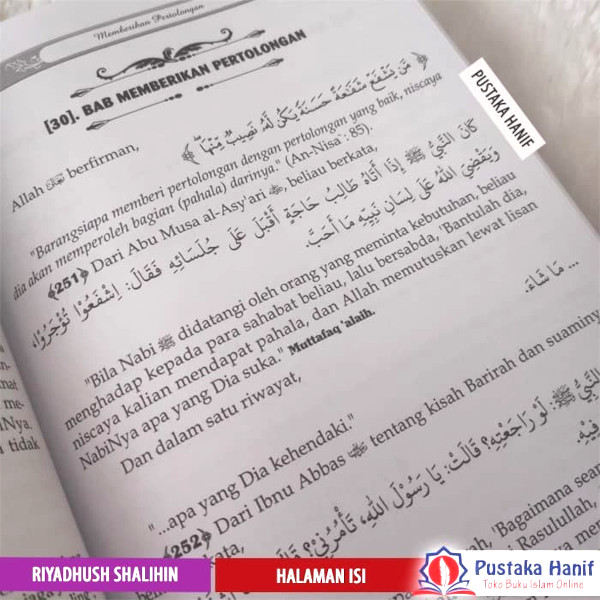 Memberikan Pertolongan
[30]. BAB MEMBERIKAN PERTOLONGAN
Allah ﷻ berfirman,
﴿ مَن يَشْفَعْ شَفَاعَةً حَسَنَةً يَكُن لَّهُ نَصِيبٌ مِّنْهَا ﴾
"Barangsiapa memberi pertolongan dengan pertolongan yang baik, niscaya
dia akan memperoleh bagian (pahala) darinya." (An-Nisa`: 85).
﴾251﴿ Dari Abu Musa al-Asy'ari ؓ, beliau berkata,
كَانَ النَّبِيُّ ﷺ إِذَا أَتَاهُ طَالِبُ حَاجَةٍ أَقْبَلَ عَلَى جُلَسَائِهِ فَقَالَ: اِشْفَعُوْا تُؤْجَرُوْا،
وَيَقْضِي اللهُ عَلَى لِسَانِ نَبِيِّهِ مَا أَحَبَّ.
"Bila Nabi ﷺ didatangi oleh orang yang meminta kebutuhan, beliau
menghadap kepada para sahabat beliau, lalu bersabda, 'Bantulah dia,
niscaya kalian mendapat pahala, dan Allah memutuskan lewat lisan
NabiNya apa yang Dia suka." Muttafaq 'alaih.
Dan dalam satu riwayat,
... مَا شَاءَ.
"...apa yang Dia kehendaki."
﴾252﴿ Dari Ibnu Abbas ؓ tentang kisah Barirah dan suaminy
النَّبِيُّ ﷺ: لَوْ رَاجَعْتِهِ؟ قَالَتْ: يَا رَسُوْلَ اللهِ، تَأْمُرُنِيْ؟ قَالَ
فِيْهِ.
'Bagaimana sean
Rasulullah,
nat
me-
NiNya.
tidak
PUSTAKA HANIF
RIYADHUSH SHALIHIN
HALAMAN ISI
Pustaka Hanif
Toko Buku Islam Online